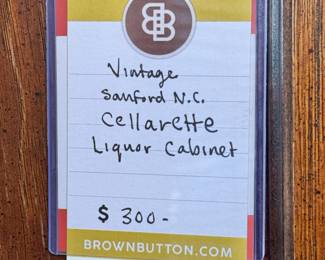 BB
Vintage
Sanford N.C.
Cellarette
Liquor Cabinet
$ 300-
BROWNBUTTON.COM